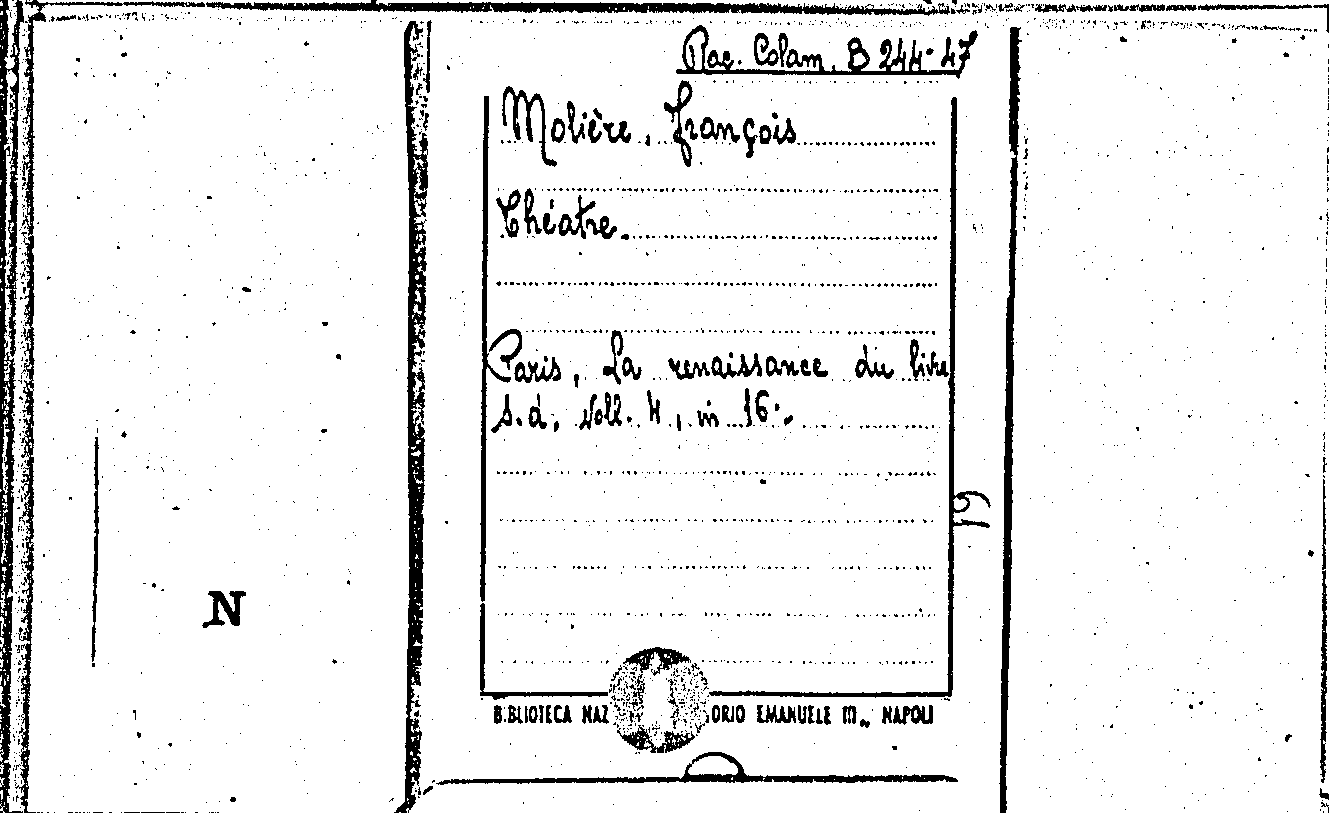 Rac. Colam. B 244-47
Molière, François
Théatre.
Paris, La renaissance du livre
s.d., Voll. 4, in 16°.
19
N
BIBLIOTECA NAZ ORIO EMANUELE III„ NAPOLI